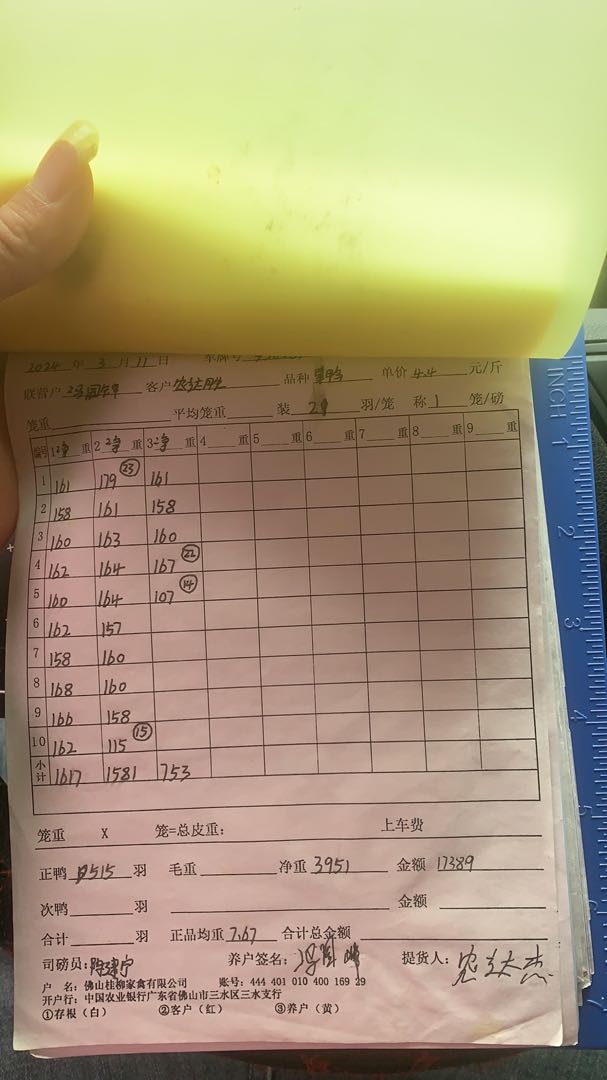 2024 年 3 月 11 日 车牌号
联营户 客户 农达胜 品种 单价 4.4 元/斤
笼重 平均笼重 装 21 羽/笼 称 1 笼/磅
编号 1 重 2 重 3 重 4 重 5 重 6 重 7 重 8 重 9 重
1 161 179 ㉓ 161
2 158 161 158
3 160 163 160
4 162 164 167 ㉒
5 160 164 107 ⑭
6 162 157
7 158 160
8 168 160
9 166 158
10 162 115 ⑮
小计 1617 1581 753
笼重 X 笼=总皮重： 上车费
正鸭 515 羽 毛重 净重 3951 金额 17389
次鸭 羽 金额
合计 羽 正品均重 7.67 合计总金额
司磅员： 养户签名： 提货人：
户 名：佛山桂柳家禽有限公司 账号：444 401 010 400 169 29
开户行：中国农业银行广东省佛山市三水区三水支行
①存根（白） ②客户（红） ③养户（黄）
INCH 1 2 3 4 5 6 7